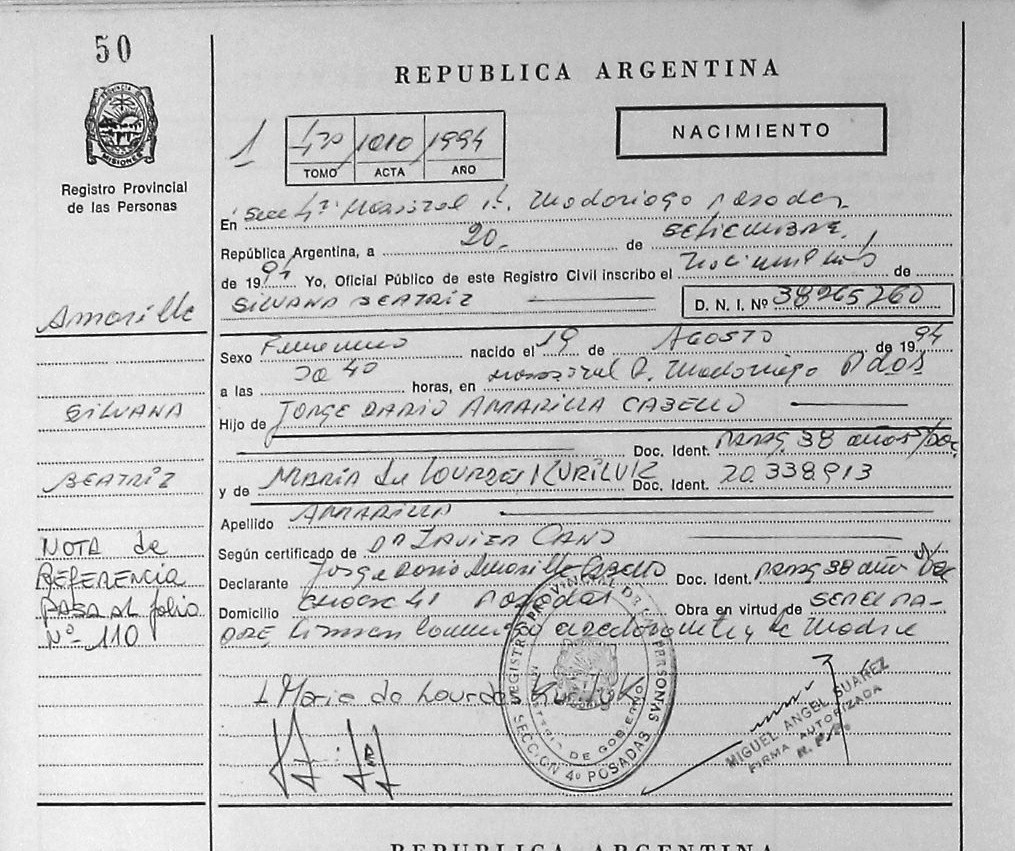 50
REPUBLICA ARGENTINA
PROVINCIA DE MISIONES
Registro Provincial
de las Personas
NACIMIENTO
1 4to 1010 1994
TOMO ACTA AÑO
En Secc 4ª Posadas
República Argentina, a 20 de SETIEMBRE
de 1994 Yo, Oficial Público de este Registro Civil inscribo el Nacimiento de
SILVANA BEATRIZ D. N. I. Nº 38265260
Amarilla
SILVANA
BEATRIZ
Sexo Femenino nacido el 19 de AGOSTO de 1994
a las 20 40 horas, en R. Madariaga Pdas
Hijo de JORGE DARIO AMARILLA CABELLO
Doc. Ident. parag 38 años
y de MARIA de LOURDES KURILUK Doc. Ident. 20.338.913
Apellido AMARILLA
Según certificado de DR JAVIER CANO
Declarante Jorge Dario Amarilla Cabello Doc. Ident. parag 38 años
Domicilio 41 Posadas Obra en virtud de SER EL PA-
DRE, firman y la Madre
NOTA de
REFERENCIA
PASA AL folio
Nº 110
Maria de Lourdes Kuriluk
REGISTRO PROVINCIAL DE LAS PERSONAS
MINISTERIO DE GOBIERNO
SECCION 4º POSADAS
MIGUEL ANGEL SUAREZ
FIRMA AUTORIZADA
R. P. P.
REPUBLICA ARGENTINA